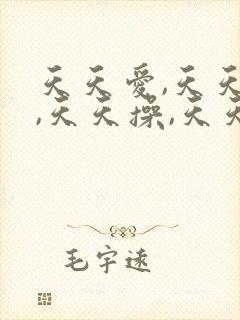 天天愛,天天
,天天操,天天
毛宇速